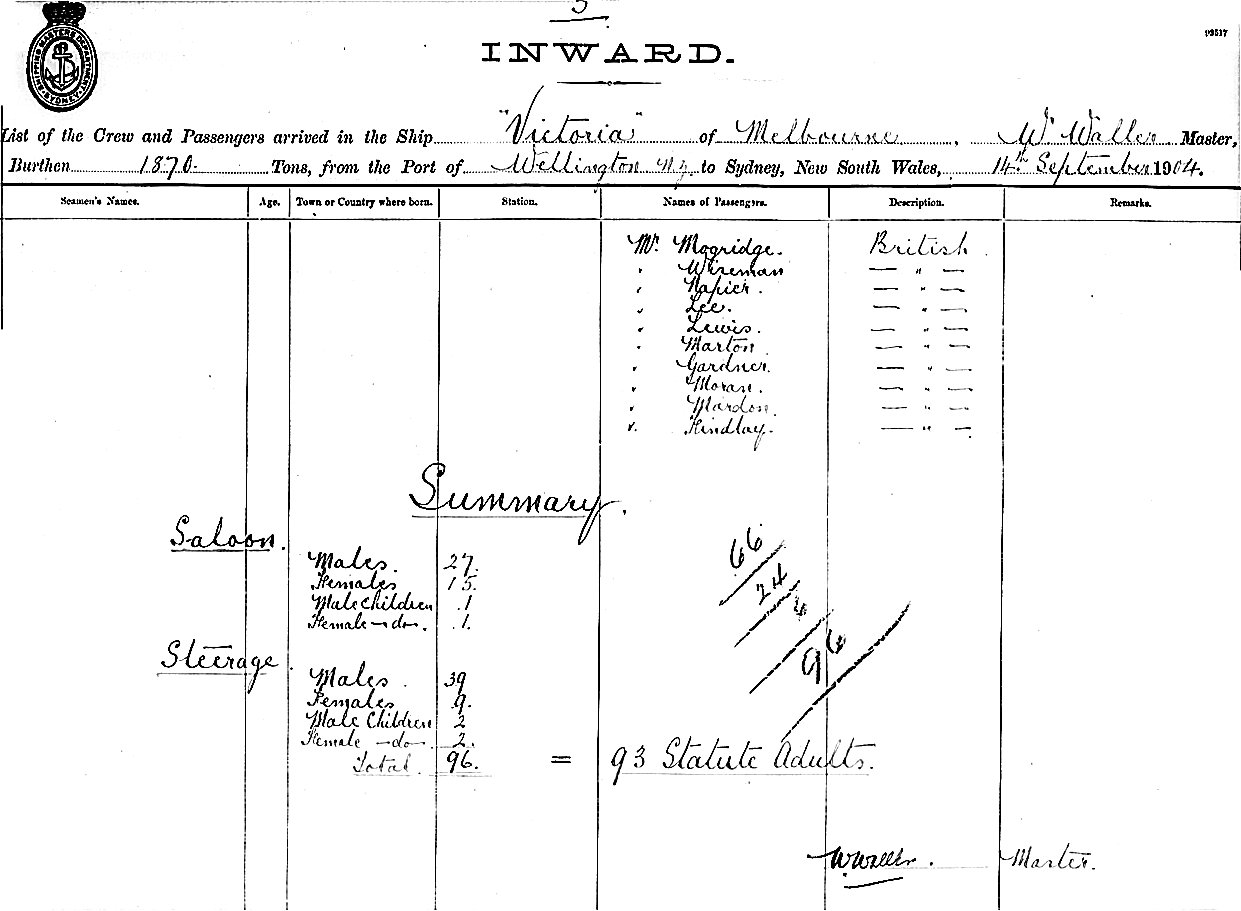 5
INWARD.
P9517
SHIPPING MASTERS DEPARTMENT SYDNEY
List of the Crew and Passengers arrived in the Ship "Victoria" of Melbourne, W Waller Master,
Burthen 1870 Tons, from the Port of Wellington NZ to Sydney, New South Wales, 14th September 1904.
Seamen's Names. Age. Town or Country where born. Station. Names of Passengers. Description. Remarks.
Mr. Mogridge. British.
" Wireman — " —
" Napier. — " —
" Lee. — " —
" Lewis. — " —
" Marton — " —
" Gardner. — " —
" Moran. — " —
" Mardon. — " —
" Findlay. — " —
Summary.
Saloon.
Males. 27.
Females 15.
Male Children 1
Female —do—. 1.
Steerage
Males. 39
Females 9.
Male Children 2
Female —do— 2.
Total. 96. = 93 Statute Adults.
66
24
6
96
W. Waller. Master.